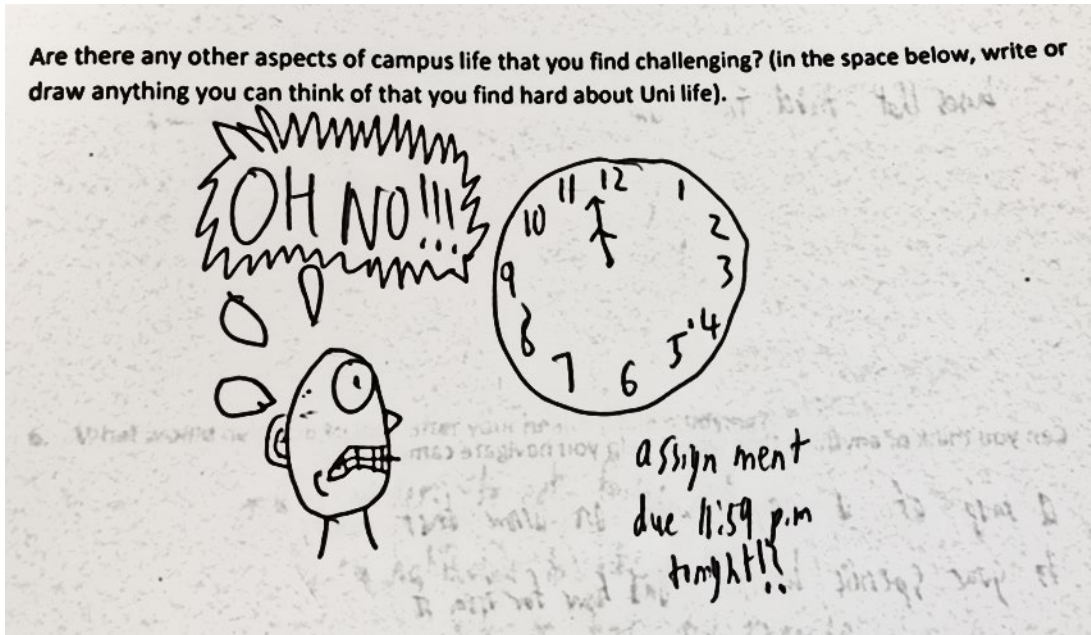 Are there any other aspects of campus life that you find challenging? (in the space below, write or
draw anything you can think of that you find hard about Uni life).
OH NO!!!
11 12 1
10 2
9 3
8 4
7 6 5
assignment
due 11:59 p.m
tonght!!